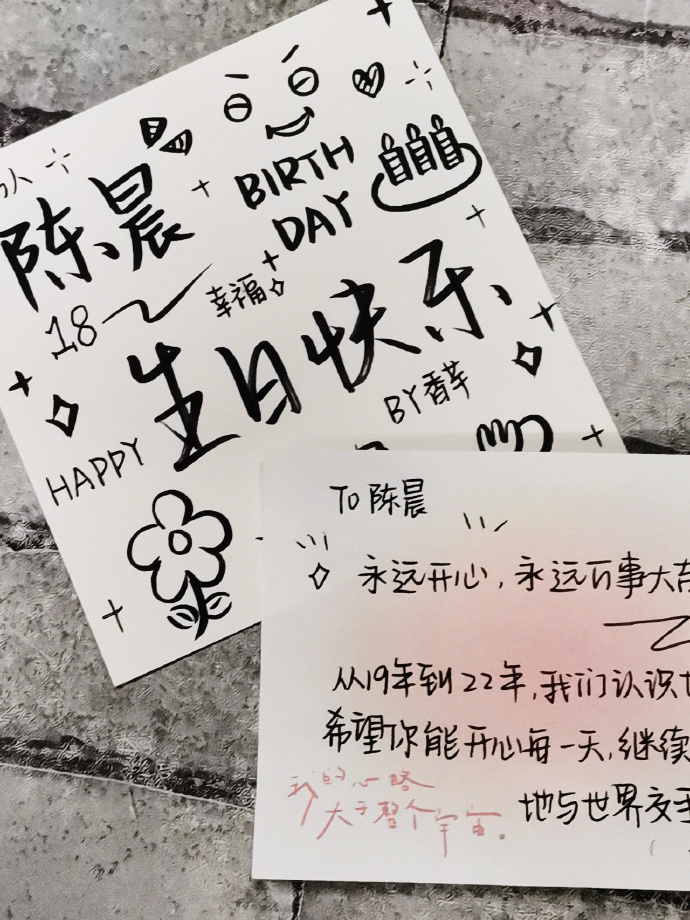 人
陈晨
BIRTH
DAY
18
幸福
生日快乐
BY香芋
HAPPY
TO 陈晨
永远开心，永远万事大吉
从19年到22年，我们认识
希望你能开心每一天，继续
地与世界交手
我的心路
大于整个宇宙。